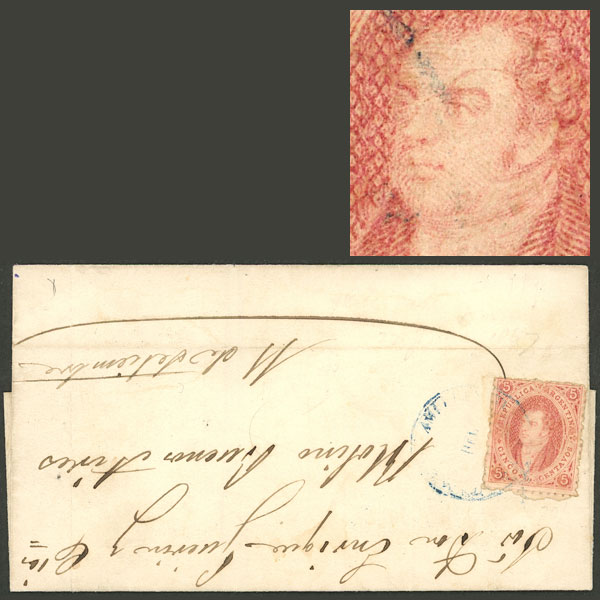 Sr Don Enrique Guerin y Cia
Molino Buenos Aires
11 de Setiembre
5 5
REPUBLICA ARGENTINA
CINCO CENTAVOS
5 5